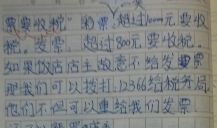 票要收税" 彩票超过10000元要收
税。发票,超过800元要收税。
如果饭店店主故意不给发票
呢我们可以拨打12366给税务局
他们不但可以重给我们发票